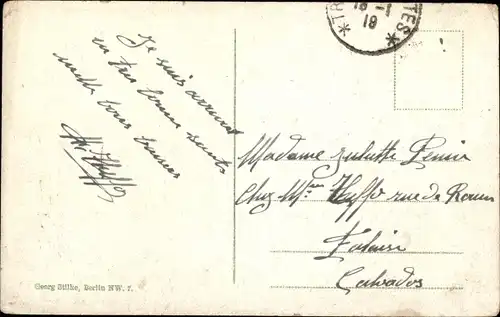 *TR
18-1
19
TES*
Je suis arrivée
en très bonne santé
mille bons baisers
Madame Juliette
Chez Mme Hupp rue de Rouen
Falaise
Calvados
Georg Stilke, Berlin NW. 7.